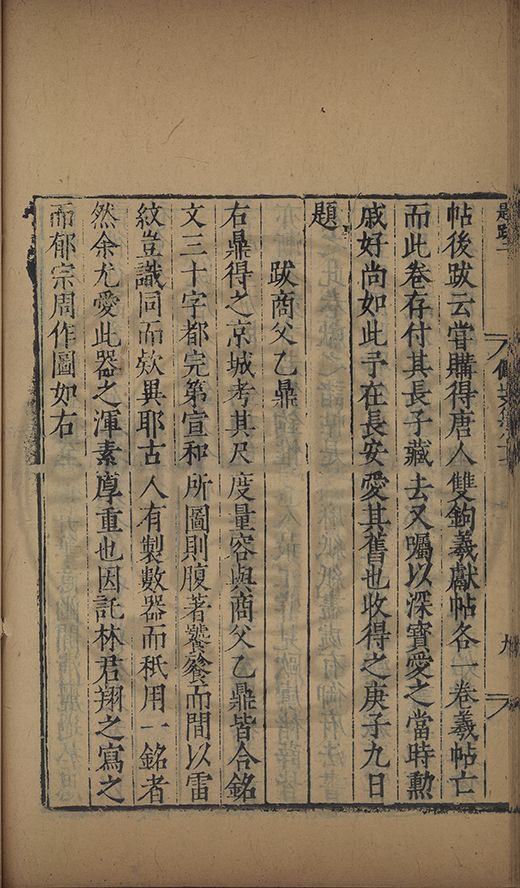 題跋一
九
帖後跋云嘗購得唐人雙鉤羲獻帖各一卷羲帖亡
而此卷存付其長子藏去又囑以深寶愛之當時勲
戚好尚如此予在長安愛其舊也收得之庚子九日
題
跋商父乙鼎
右鼎得之京城考其尺度量容與商父乙鼎皆合銘
文三十字都完第宣和所圖則腹著饕餮而間以雷
紋豈識同而欵異耶古人有製數器而秖用一銘者
然余尤愛此器之渾素厚重也因託林君翔之寫之
而郁宗周作圖如右